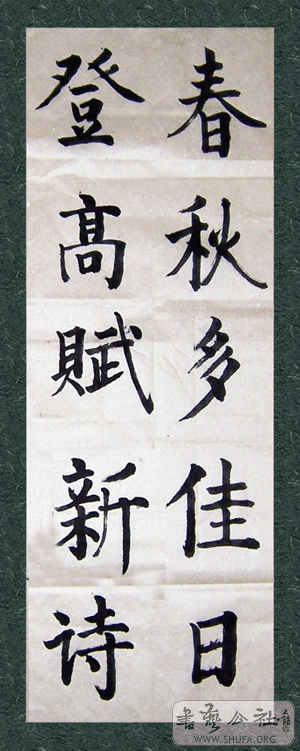 春秋多佳日
登高賦新诗
書藝公社
WWW.SHUFA.ORG